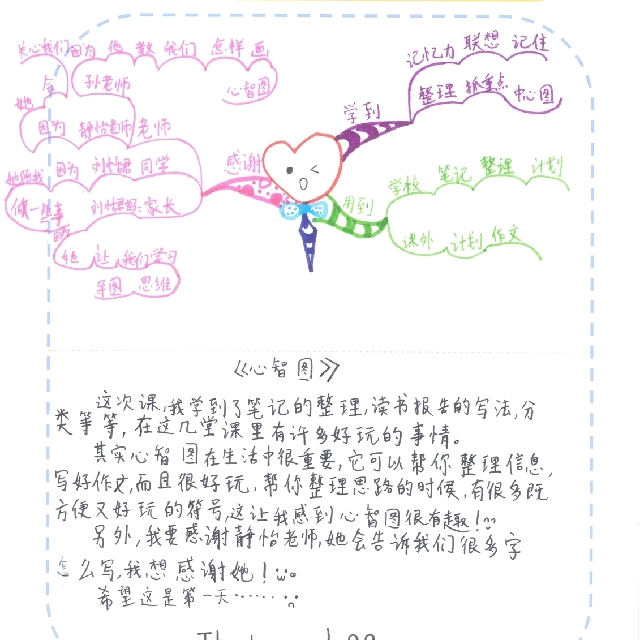 关心我们 因为 他 教 我们 怎样 画
孙老师 心智图
她
因为 静怡老师 老师
她陪我 因为 刘怡君 同学
做一些事 刘怡君 家长
她 让 我们学习
导图 思维
感谢
学到
记忆力 联想 记住
整理 抓重点 中心图
用到
学校 笔记 整理 计划
课外 计划 作文
《心智图》
这次课,我学到了笔记的整理,读书报告的写法,分
类等等,在这几堂课里有许多好玩的事情。
其实心智图在生活中很重要,它可以帮你整理信息,
写好作文,而且很好玩,帮你整理思路的时候,有很多既
方便又好玩的符号,这让我感到心智图很有趣!
另外,我要感谢静怡老师,她会告诉我们很多字
怎么写,我想感谢她!
希望这是第一天……